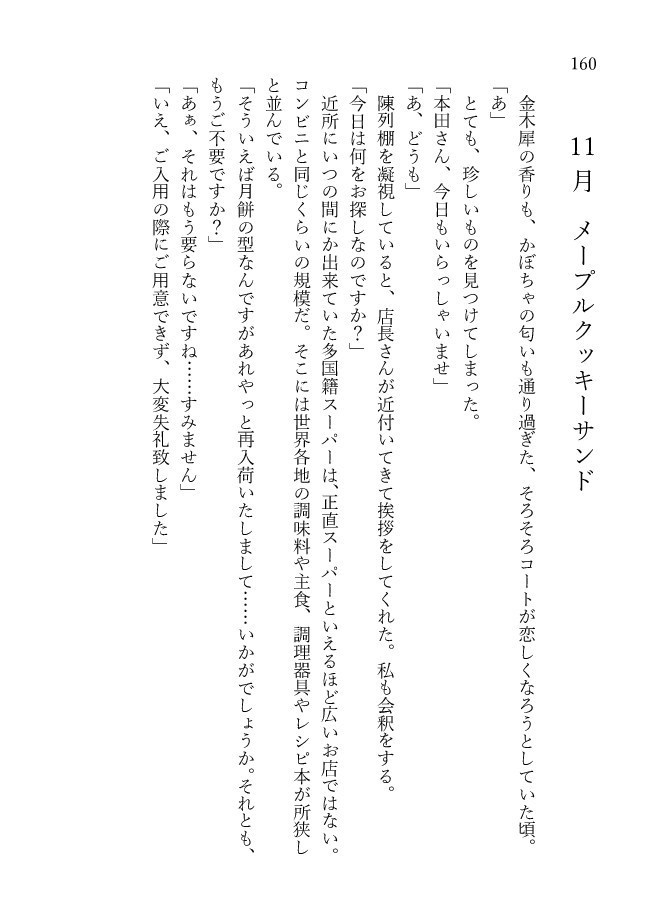 160
11月　メープルクッキーサンド
　金木犀の香りも、かぼちゃの匂いも通り過ぎた、そろそろコートが恋しくなろうとしていた頃。
「あ」
　とても、珍しいものを見つけてしまった。
「本田さん、今日もいらっしゃいませ」
「あ、どうも」
　陳列棚を凝視していると、店長さんが近付いてきて挨拶をしてくれた。私も会釈をする。
「今日は何をお探しなのですか？」
　近所にいつの間にか出来ていた多国籍スーパーは、正直スーパーといえるほど広いお店ではない。
コンビニと同じくらいの規模だ。そこには世界各地の調味料や主食、調理器具やレシピ本が所狭し
と並んでいる。
「そういえば月餅の型なんですがあれやっと再入荷いたしまして……いかがでしょうか。それとも、
もうご不要ですか？」
「あぁ、それはもう要らないですね……すみません」
「いえ、ご入用の際にご用意できず、大変失礼致しました」